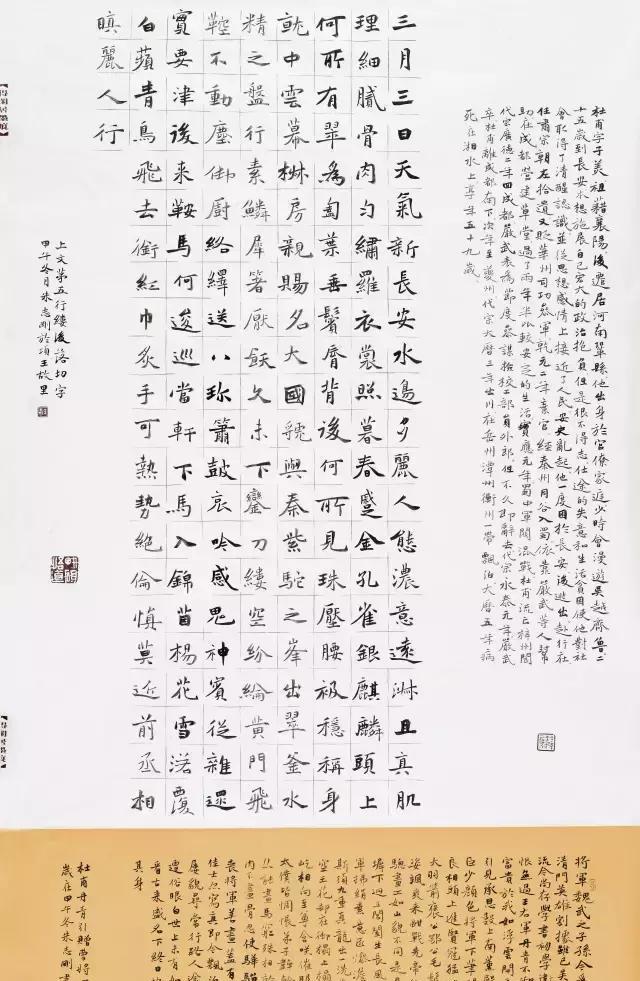 杜甫字子美祖籍襄陽後遷居河南鞏縣他出身於官僚家庭少時會漫遊吳越齊魯二
十五歲到長安本想施展自己宏大的政治抱負但是很不得志仕途的失意和生活貧困使他對社
會取得了清醒認識並從思想感情上接近了人民安史亂起他一度困於長安後逃出赴行在
任肅宗朝左拾遺又貶華州司功參軍乾元二年棄官經秦州同谷入蜀依靠嚴武等人幫
助在成都營建草堂過了兩年半比較安定的生活寶應元年蜀中軍閥混戰杜甫流亡梓州閬
代宗廣德二年回成都嚴武表為節度參謀檢校工部員外郎但不久即辭去代宗永泰元年嚴武
卒杜甫離成都南下次年至夔州代宗大曆三年出川在岳州潭州衡州一帶飄泊大曆五年病
死在湘水上享年五十九歲
三月三日天氣新長安水邊多麗人態濃意遠淑且真肌
理細膩骨肉勻繡羅衣裳照暮春蹙金孔雀銀麒麟頭上
何所有翠為匎葉垂鬢脣背後何所見珠壓腰衱穩稱身
就中雲幕椒房親賜名大國虢與秦紫駝之峯出翠釜水
精之盤行素鱗犀箸厭飫久未下鑾刀縷空紛綸黃門飛
鞚不動塵御廚絡繹送八珍簫鼓哀吟感鬼神賓從雜遝
實要津後來鞍馬何逡巡當軒下馬入錦茵楊花雪落覆
白蘋青鳥飛去銜紅巾炙手可熱勢絕倫慎莫近前丞相
瞋麗人行
上文第五行縷後落切字
甲午冬月朱志剛於項王故里
將軍魏武之子孫今
清門英雄割據雖已
流今尚存學書初學衛
恨無過王右軍丹青不
富貴於我如浮雲開
引見承恩數上南薰殿
臣少顏色將軍下筆
良相頭上進賢冠猛
大羽箭褒公鄂公毛
姿颯爽來酣戰先帝
驄畫工如山貌不同是
墀下迥立閶闔生長風
軍拂絹素意匠慘澹
斯須九重真龍出一洗
空玉花却在御榻上榻
屹相向至尊含笑催
太僕皆惆悵弟子韓幹
亦能畫馬窮殊相
肉不畫骨忍使驊騮
喪將軍善畫蓋有
佳士亦寫真即今飄泊
屢貌尋常行路人途
遭俗眼白世上未有
看古來盛名下終日
其身
杜甫丹青引贈曹將
歲在甲午冬朱志剛書